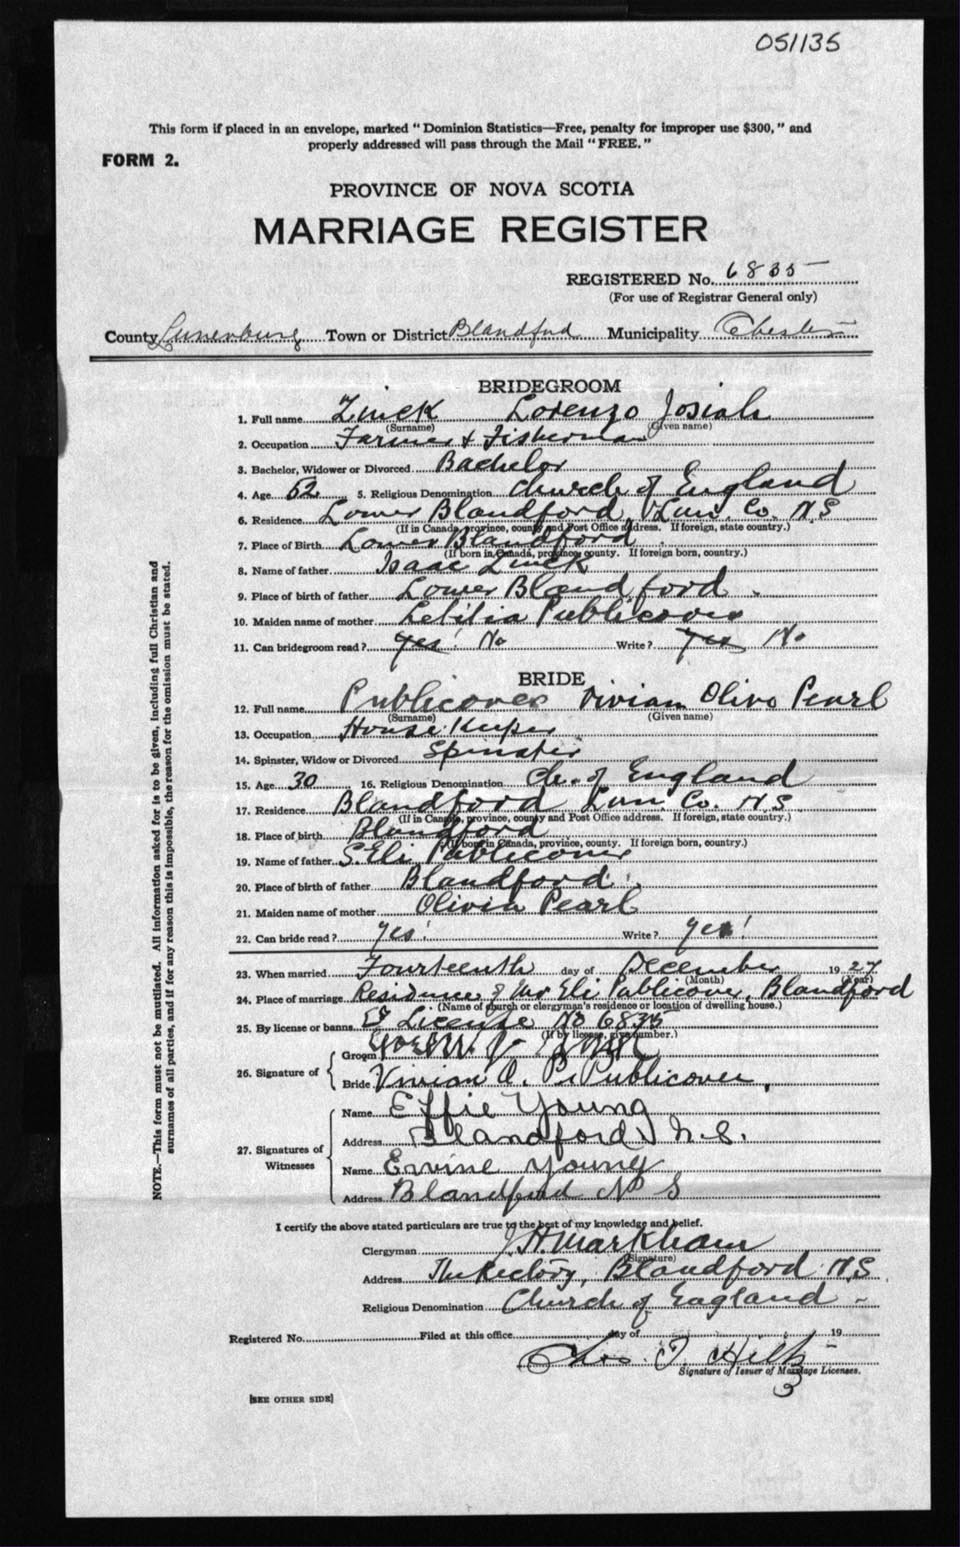 051135
This form if placed in an envelope, marked "Dominion Statistics—Free, penalty for improper use $300," and
properly addressed will pass through the Mail "FREE."
FORM 2.
PROVINCE OF NOVA SCOTIA
MARRIAGE REGISTER
REGISTERED No. 6835
(For use of Registrar General only)
County Lunenburg Town or District Blandford Municipality Chester
BRIDEGROOM
1. Full name Zinck Lorenzo Josiah
(Surname) (Given name)
2. Occupation Farmer & Fisherman
3. Bachelor, Widower or Divorced Bachelor
4. Age 52 5. Religious Denomination Church of England
6. Residence Lower Blandford, Lun. Co. N.S.
(If in Canada, province, county and Post Office address. If foreign, state country.)
7. Place of Birth Lower Blandford
(If born in Canada, province, county. If foreign born, country.)
8. Name of father Isaac Zinck
9. Place of birth of father Lower Blandford
10. Maiden name of mother Letitia Publicover
11. Can bridegroom read? Yes! No Write? Yes No
BRIDE
12. Full name Publicover Vivian Olive Pearl
(Surname) (Given name)
13. Occupation House Keeper
14. Spinster, Widow or Divorced Spinster
15. Age 30 16. Religious Denomination Ch. of England
17. Residence Blandford Lun. Co. N.S
(If in Canada, province, county and Post Office address. If foreign, state country.)
18. Place of birth Blandford
(If born in Canada, province, county. If foreign born, country.)
19. Name of father S. Eli Publicover
20. Place of birth of father Blandford
21. Maiden name of mother Olivia Pearl
22. Can bride read? Yes! Write? Yes!
23. When married Fourteenth day of December 1927
(Month) (Year)
24. Place of marriage Residence of Mr Eli Publicover, Blandford
(Name of church or clergyman's residence or location of dwelling house.)
25. By license or banns License No 6835
(If by license, give number.)
26. Signature of
Groom
Bride Vivian O. P. Publicover
27. Signatures of Witnesses
Name Effie Young
Address Blandford, N.S.
Name Ervine Young
Address Blandford N S
I certify the above stated particulars are true to the best of my knowledge and belief.
Clergyman J. H. Markham
(Signature)
Address The Rectory, Blandford N.S.
Religious Denomination Church of England
Registered No. Filed at this office day of 19
Chas. T. Hiltz
Signature of Issuer of Marriage Licenses.
[SEE OTHER SIDE]
NOTE.—This form must not be mutilated. All information asked for is to be given, including full Christian and
surnames of all parties, and if for any reason this is impossible, the reason for the omission must be stated.